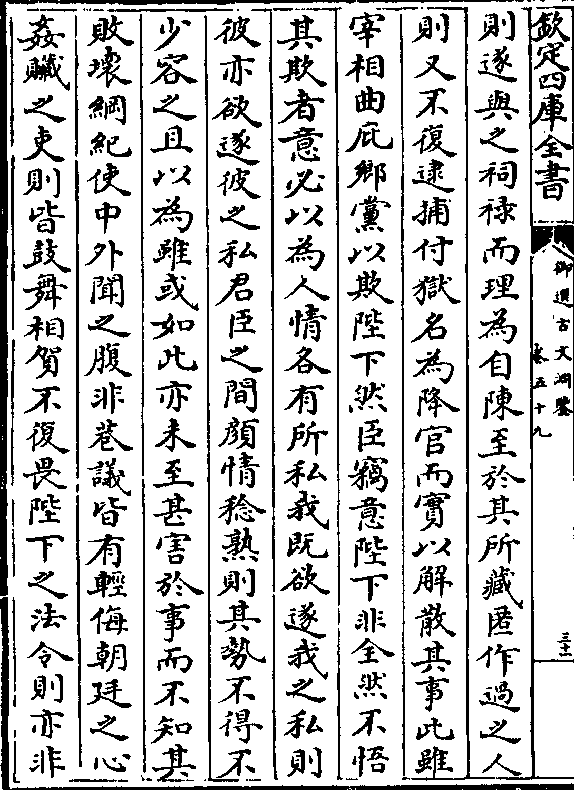 欽定四庫全書
御選古文淵鑒
卷五十九
三十一
則遂與之祠禄而理為自陳至於其所藏匿作過之人
則又不復逮捕付獄名為降官而實以解散其事此雖
宰相曲庇鄉黨以欺陛下然臣竊意陛下非全然不悟
其欺者意必以為人情各有所私我既欲遂我之私則
彼亦欲遂彼之私君臣之間顔情稔熟則其勢不得不
少容之且以為雖或如此亦未至甚害於事而不知其
敗壞綱紀使中外聞之腹非巷議皆有輕侮朝廷之心
姦贓之吏則皆鼓舞相賀不復畏陛下之法令則亦非